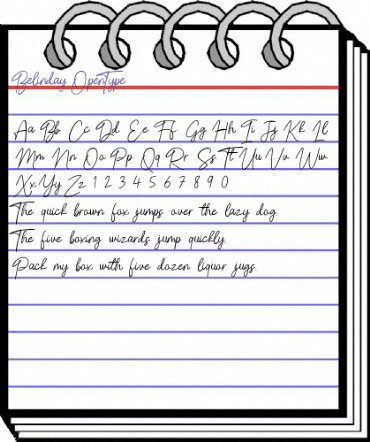 Belinday OpenType
Aa Bb Cc Dd Ee Ff Gg Hh Ii Jj Kk Ll
Mm Nn Oo Pp Qq Rr Ss Tt Uu Vv Ww
Xx Yy Zz 1 2 3 4 5 6 7 8 9 0
The quick brown fox jumps over the lazy dog.
The five boxing wizards jump quickly.
Pack my box with five dozen liquor jugs.